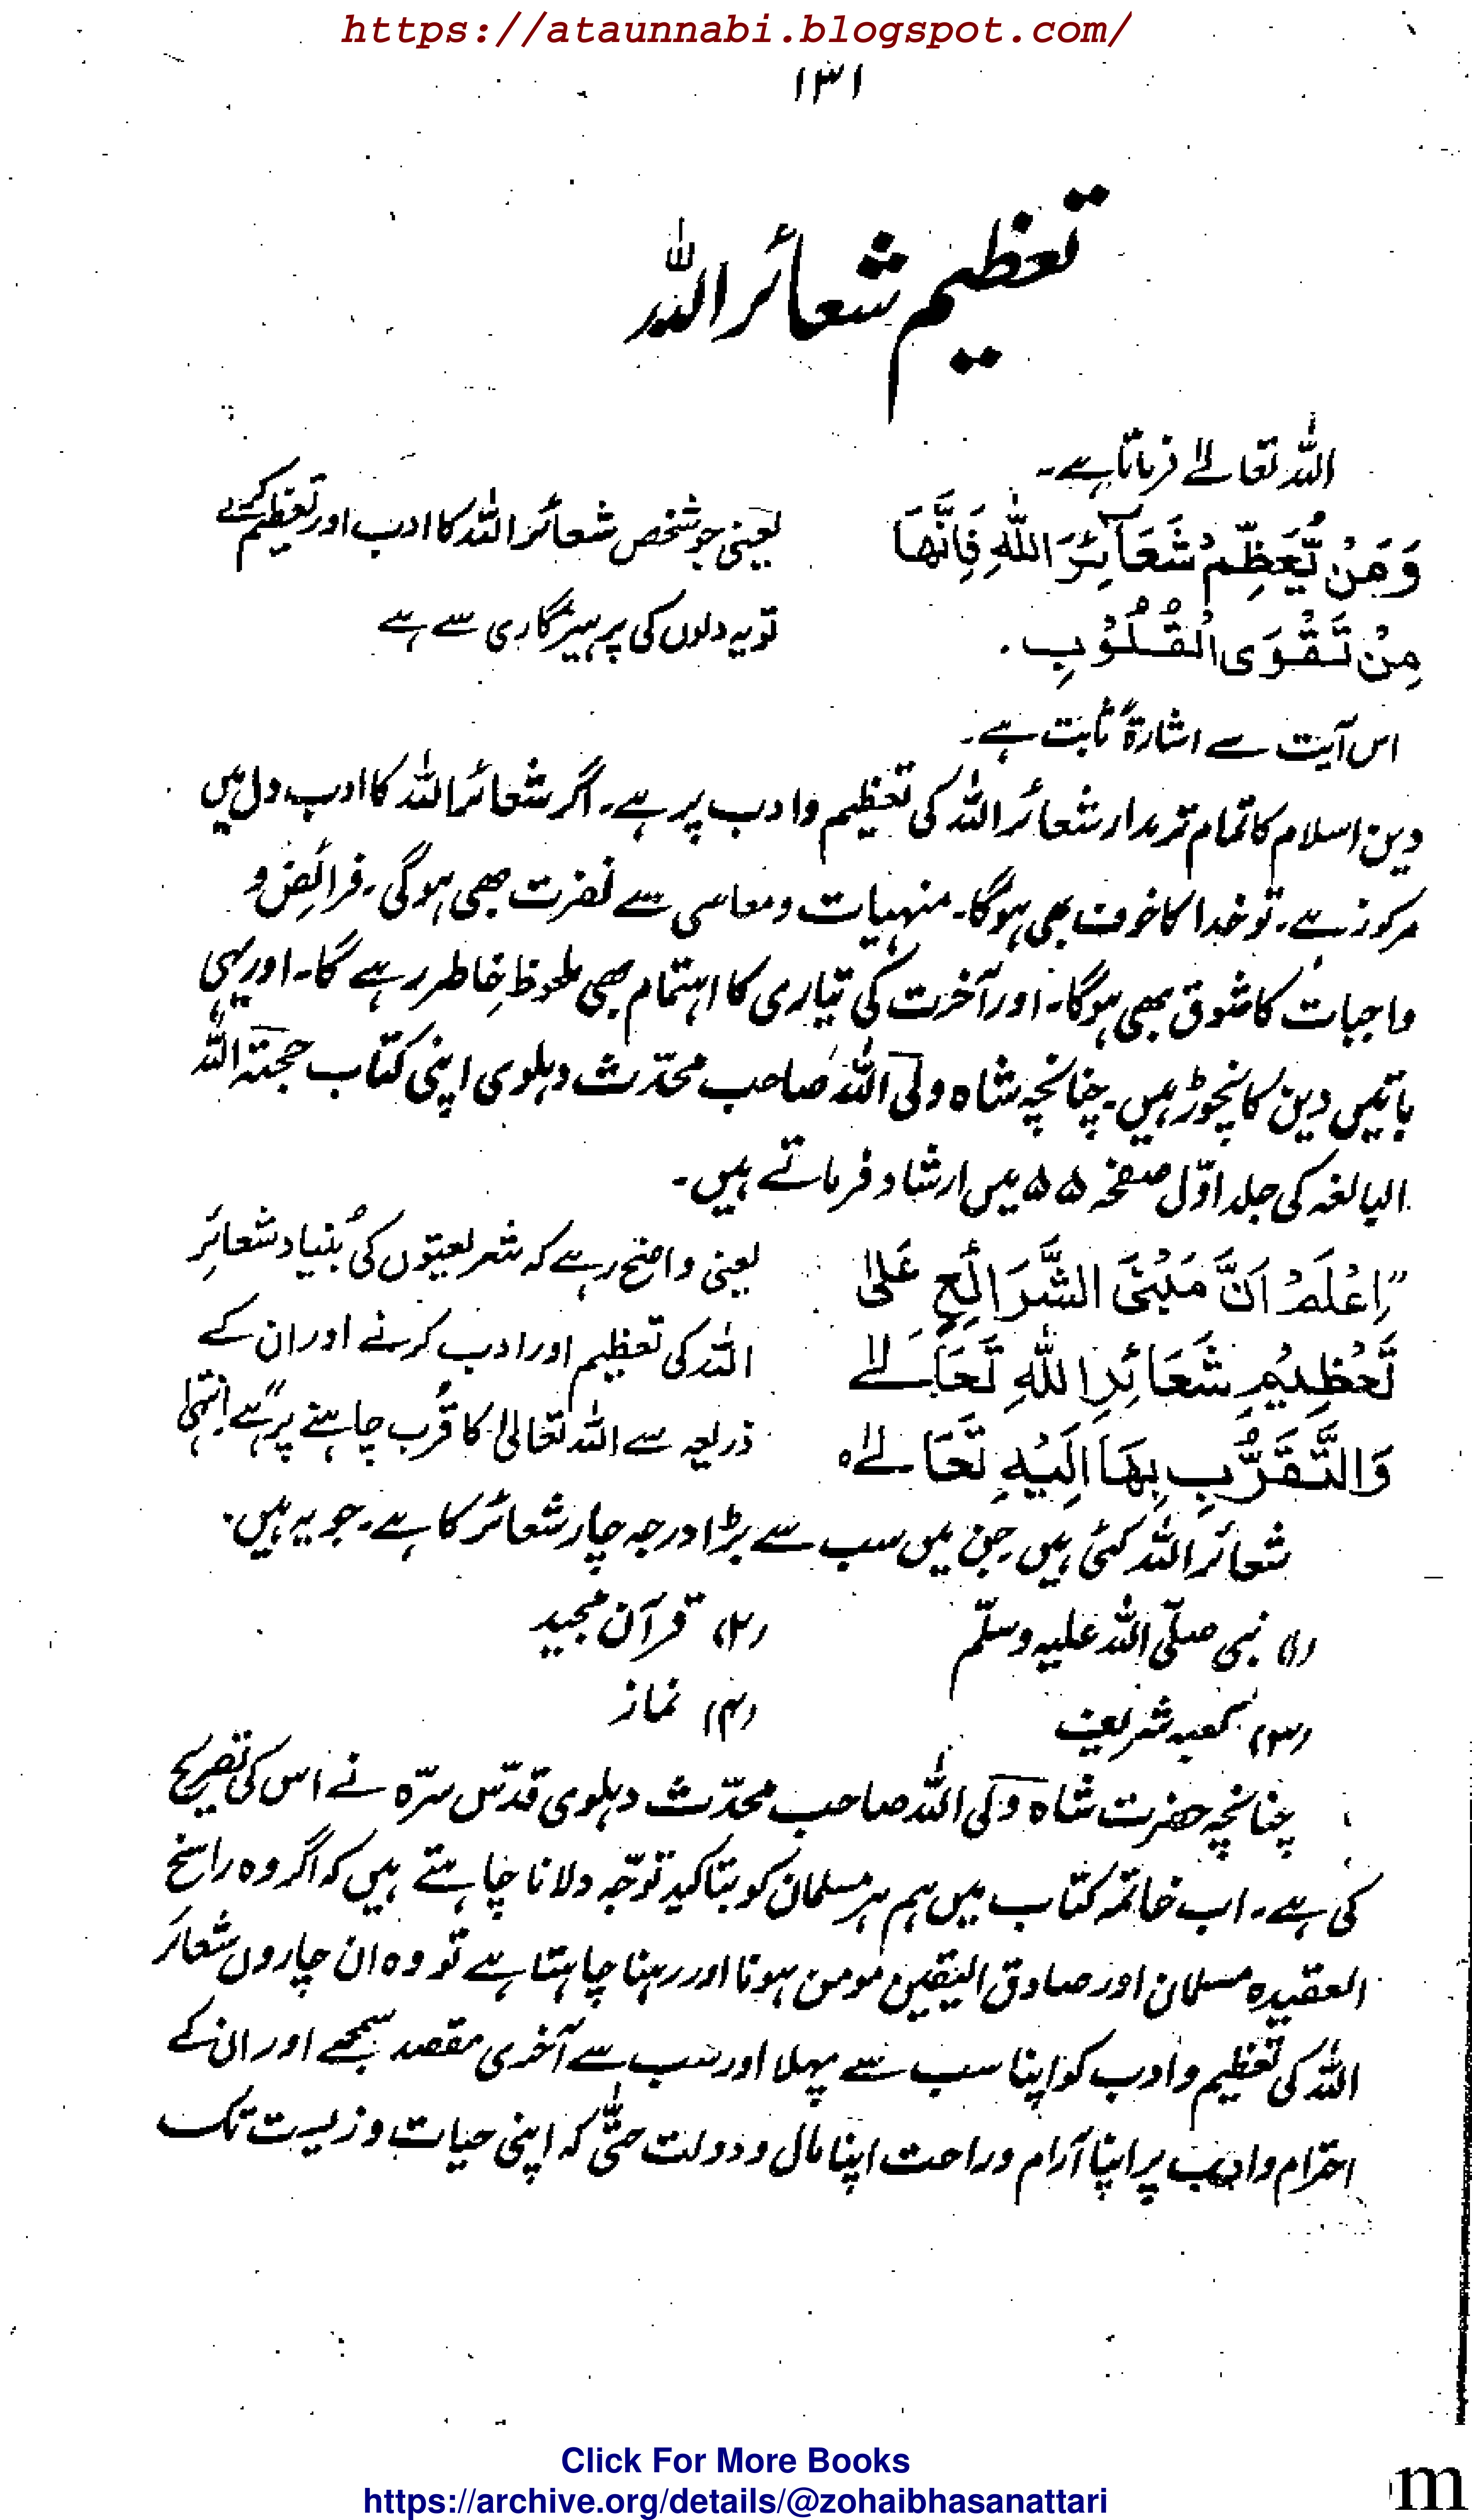 https://ataunnabi.blogspot.com/
۱۳۱
تعظیم شعائر اللہ
اللہ تعالےٰ فرماتا ہے۔
وَمَنْ يُّعَظِّمْ شَعَآئِرَ اللّٰهِ فَاِنَّهَا
مِنْ تَقْوَى الْقُلُوْبِ.
یعنی جو شخص شعائر اللہ کا ادب اور تعظیم کرے
تو یہ دلوں کی پرہیزگاری سے ہے
اس آیت سے اشارۃً ثابت ہے۔
دین اسلام کا تمام تر مدار شعائر اللہ کی تعظیم و ادب پر ہے۔ اگر شعائر اللہ کا ادب دل میں
مرکوز ہے۔ تو خدا کا خوف بھی ہوگا۔ منہیات و معاسی سے نفرت بھی ہوگی۔ فرائض و
واجبات کا شوق بھی ہوگا۔ اور آخرت کی تیاری کا اہتمام بھی ملحوظِ خاطر رہے گا۔ اور یہی
باتیں دین کا نچوڑ ہیں۔ چنانچہ شاہ ولی اللہ صاحب محدّث دہلوی اپنی کتاب حجتہ اللہ
البالغہ کی جلد اوّل صفحہ ۵۵ میں ارشاد فرماتے ہیں۔
"اِعْلَمْ اَنَّ مَبْنَى الشَّرَائِعِ عَلىٰ
تَعْظِيْمِ شَعَائِرِ اللّٰهِ تَعَالےٰ
وَالتَّقَرُّبِ بِهَا اِلَيْهِ تَعَالےٰ ہ
یعنی واضح رہے کہ شریعتوں کی بُنیاد شعائرِ
اللہ کی تعظیم اور ادب کرنے اور ان کے
ذریعہ سے اللہ تعالیٰ کا قُرب چاہنے پر ہے" انتہیٰ
شعائر اللہ کئی ہیں جن میں سب سے بڑا درجہ چار شعائر کا ہے۔ جو یہ ہیں۔
(۱) نبی صلّی اللہ علیہ وسلّم (۲) قرآن مجید
(۳) کعبہ شریف (۴) نماز
چنانچہ حضرت شاہ ولی اللہ صاحب محدّث دہلوی قدّس سرّہ نے اس کی تصریح
کی ہے۔ اب خاتمہ کتاب میں ہم ہر مسلمان کو بتاکید توجّہ دلانا چاہتے ہیں کہ اگر وہ راسخ
العقیدہ مسلمان اور صادق الیقین مومن ہونا اور رہنا چاہتا ہے تو وہ ان چاروں شعائر
اللہ کی تعظیم و ادب کو اپنا سب سے پہلا اور سب سے آخری مقصد سمجھے اور ان کے
احترام و ادب پر اپنا آرام و راحت اپنا مال و دولت حتّٰی کہ اپنی حیات و زیست تک
Click For More Books
https://archive.org/details/@zohaibhasanattari
m